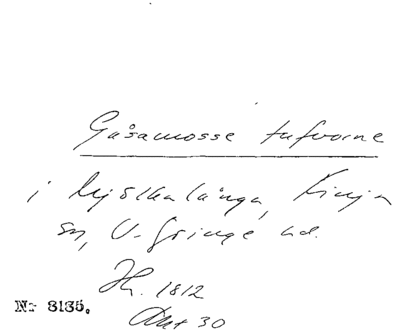 Gåsamosse tufvorne
i Mjölkalånga, Finja
sn, V. Göinge hd.
Jh. 1812
Akt 30
Nr 3135.